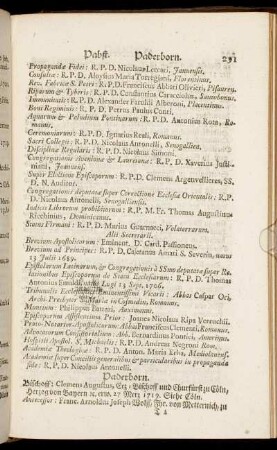 Pabst. Paderborn. 291
Propagandæ Fidei: R. P. D. Nicolaus Lercari, Januensis.
Consultæ: R. P. D. Aloysius Maria Torregiani, Florentinus.
Rev. Fabricæ S. Petri: R.P.D. Franciscus Abbati Olivieri, Pisauren.
Riparum & Tyberis: R. P. D. Constantius Caracciolus,
Immunitatis: R. P. D. Alexander Faroldi Alberoni, Placentinus.
Boni Regiminis: R. P. D. Petrus Paulus Conti,
Aquarum & Paludum Pontinarum: R. P. D. Antonius Rota, Ro-
manus.
Ceremoniarum: R. P. D. Ignatius Reali, Romanus.
Sacri Collegii: R. P. D. Nicolaus Antonelli, Senogallien.
Disciplinæ Regularis: R. P. D. Nicolaus Simoni,
Congregationis Lauretanæ: R. P. D. Xaverius Justi-
niani,
Super Electione Episcoporum: R. P. D. Clemens Argenvilleres, SS.
D. N. Auditor.
Congregationis deputatæ super Correctione Ecclesiæ Orientalis: R. P.
D. Nicolaus Antonelli, Senogalliensis.
Indicis Librorum prohibitorum: R. P. M. Fr. Thomas Augustinus
Ricchinius, Dominicanus.
Status Firmani: R. P. D. Marius Guarnacci, Volaterranus.
Alii Secretarii.
Brevium Apostolicorum: Eminent. D. Card. Passioneus.
Brevium ad Principes: R. P. D. Cajetanus Amati S. Severin, natus
13 Julii 1689.
Epistolarum Latinarum, & Congregationis à SSmo deputatæ super Re-
Episcoporum de Statu Ecclesiarum: R. P. D. Thomas
Antonius Lugi 23 Sept. 1706.
Tribunalis Vicarii: Abbas Caspar Ori,
Archi-Presbyter Mariæ in Cosmedin, Romanus.
Montium: Philippus Patrizi,
Episcopus Assistentium Prior: James Nicolaus Ripa Veruschi,
Proto-Notarior. Apostolicorum: Abbas Franciscus Clementi, Romanus,
Advocatorum Consistorialium Bernardinus Pontici,
Hospitii Apostol. S. Michaelis: R. P. D. Andreas Negroni Rom.
Academiæ Theologicæ: R. P. D. Anton. Maria Erba, Mediolanens.
Academiæ super Conciliis generalibus & particularibus in propaganda
side: R. P. D. Nicolaus Antonelli.
Paderborn.
Bischoff: Clemens Augustus, Ertz-Bischoff und Churfürst zu Cöln,
Hertzog von Bayern &c. erw. 27 Mertz 1719. Siehe Cöln.
Antecessor: Franc. Arnoldus Joseph Wolff, Frh. von Metternich, zu